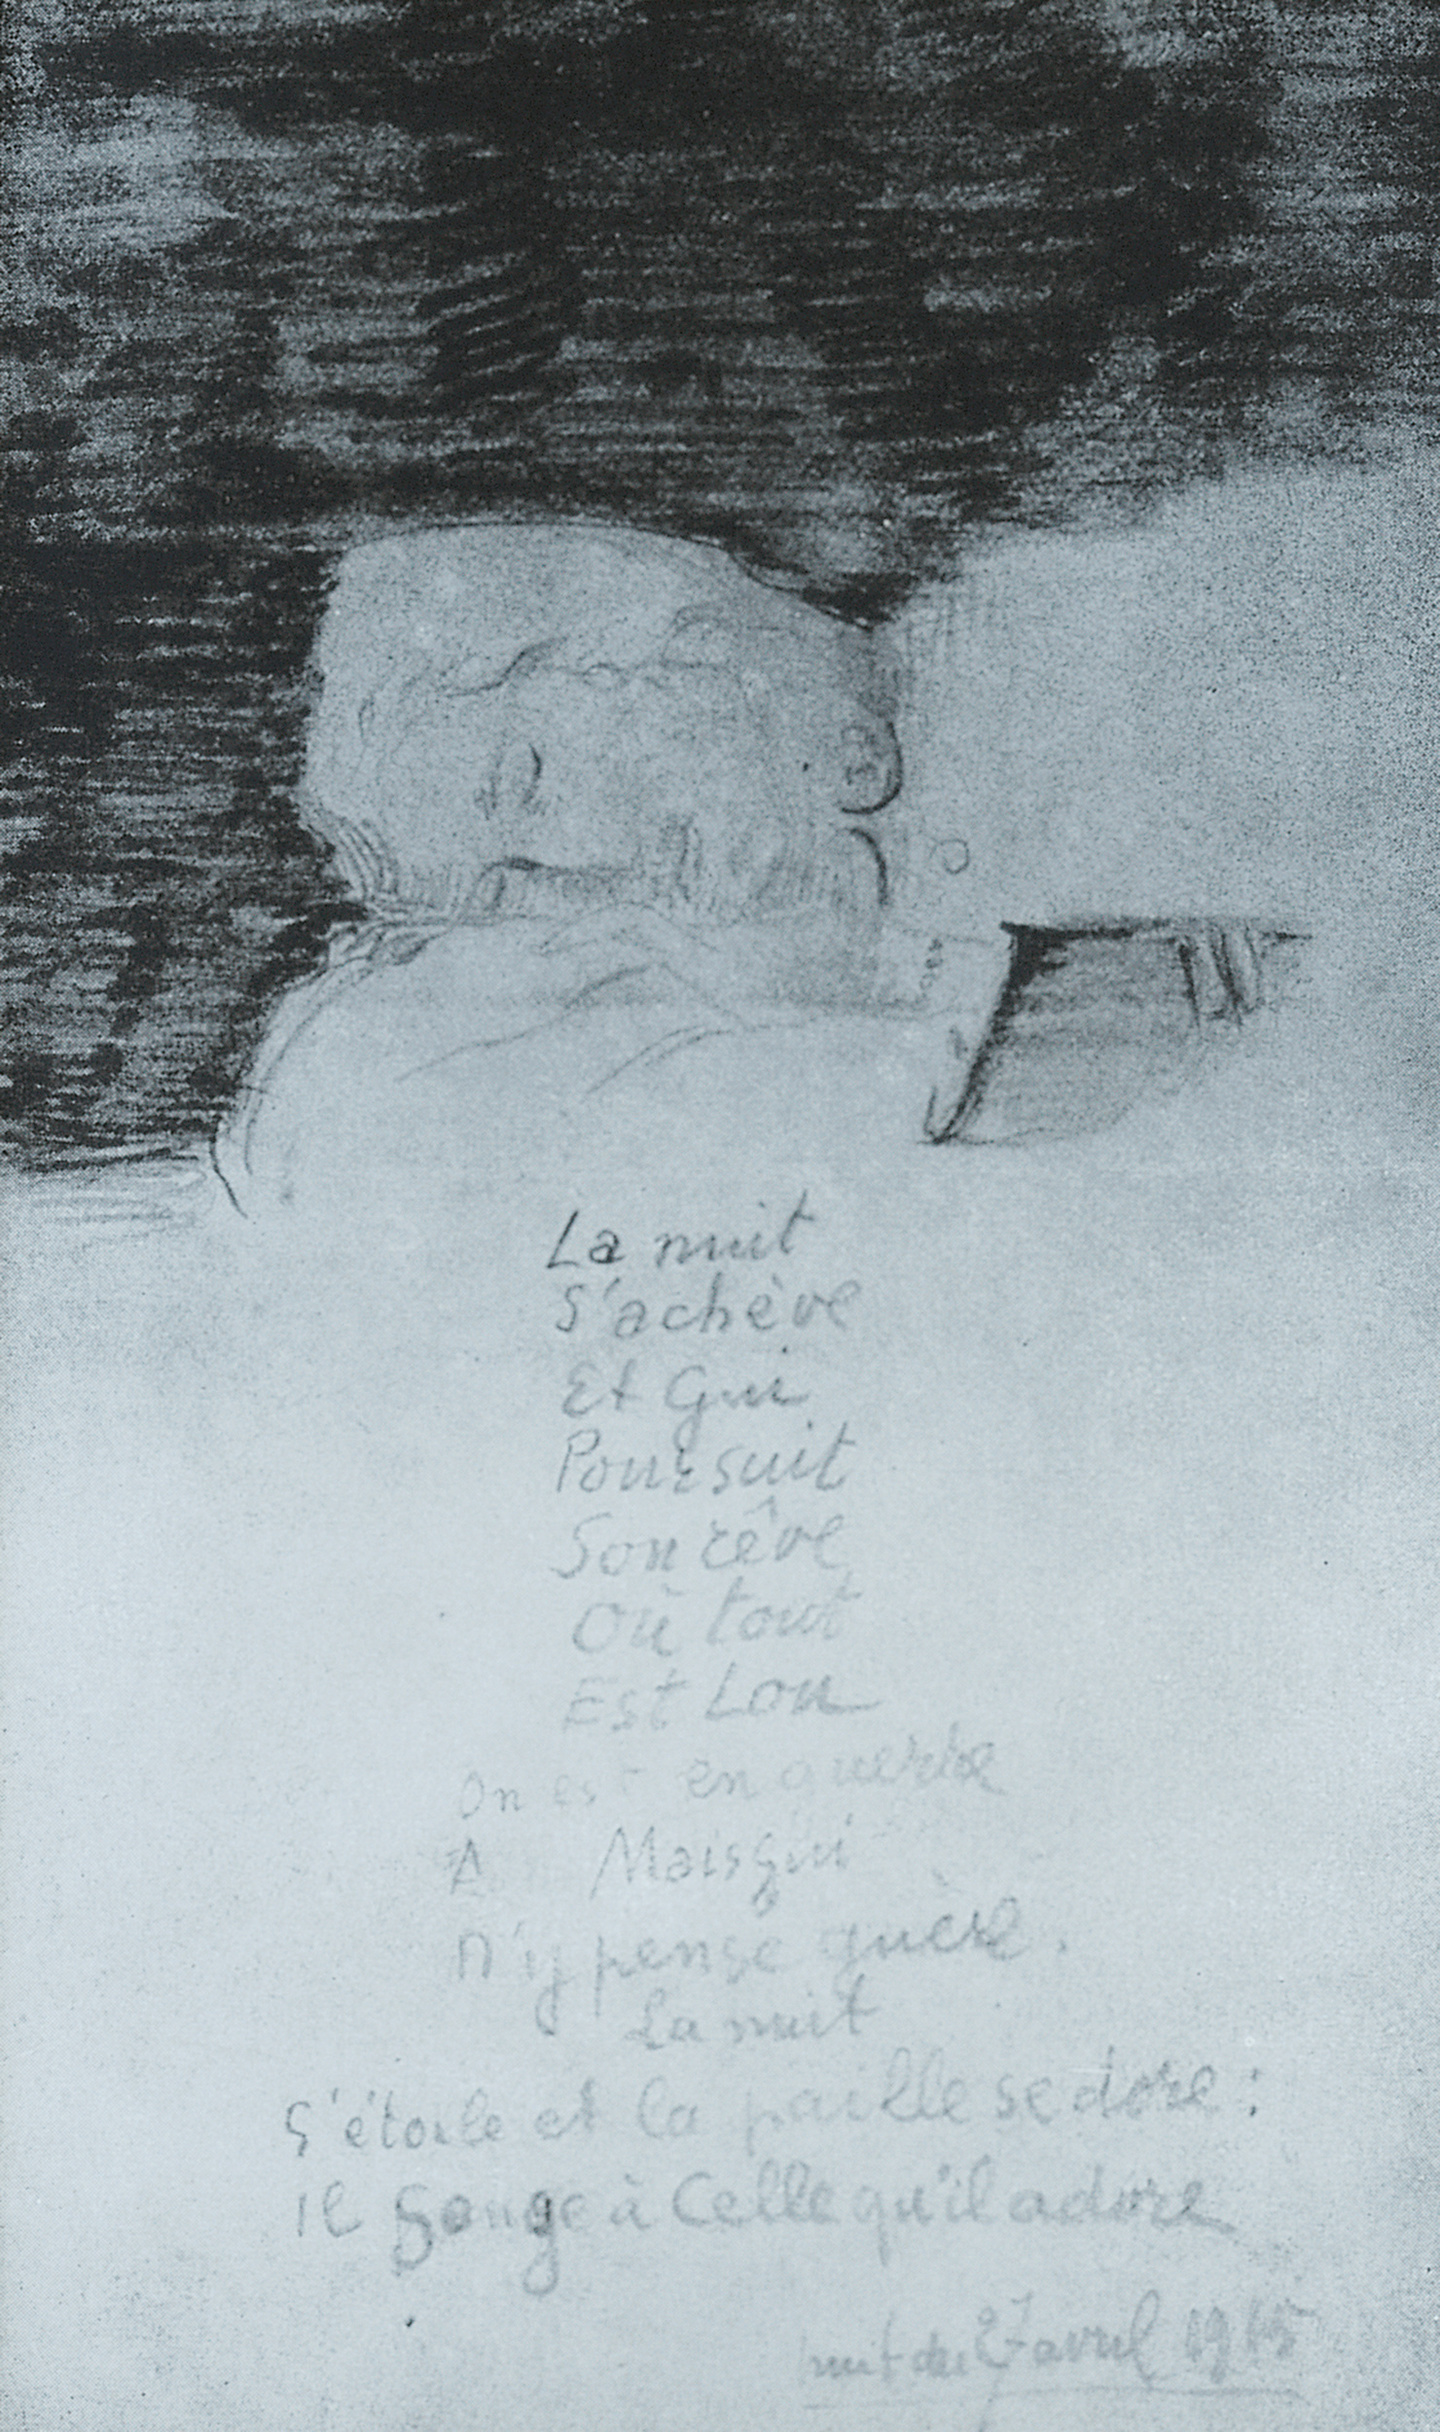 La nuit
S'achève
Et Gui
Poursuit
Son rêve
Où tout
Est Lou
On est en guerre
A Mais Gui
N'y pense guère.
La nuit
S'étoile et la paille se dore :
Il songe à Celle qu'il adore
nuit du 27 avril 1915